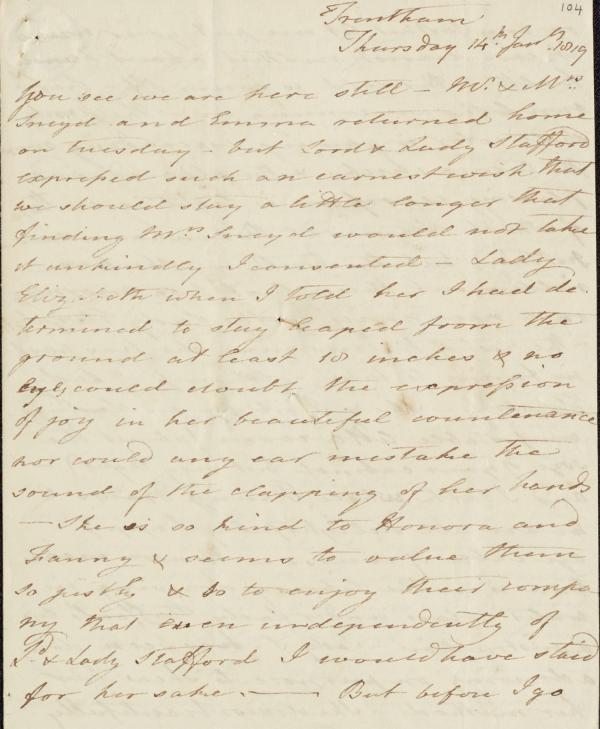 104
Trentham
Thursday 14th Jany. 1819
You see we are here still – Mr. & Mrs.
Sneyd and Emma returned home
on tuesday – but Lord & Lady Stafford
expreſsed such an earnest wish that
we should stay a little longer that
finding Mrs Sneyd would not take
it unkindly I consented – Lady
Elizabeth when I told her I had de
termined to stay leaped from the
ground at least 10 inches & no
eyes could doubt the expreſsion
of joy in her beautiful countenance
nor could any ear mistake the
sound of the clapping of her hands
– She is so kind to Honora and
Fanny & seems to value them
so justly & so to enjoy their compa
ny that even independently of
Ld. & Lady Stafford I would have staid
for her sake. — But before I go